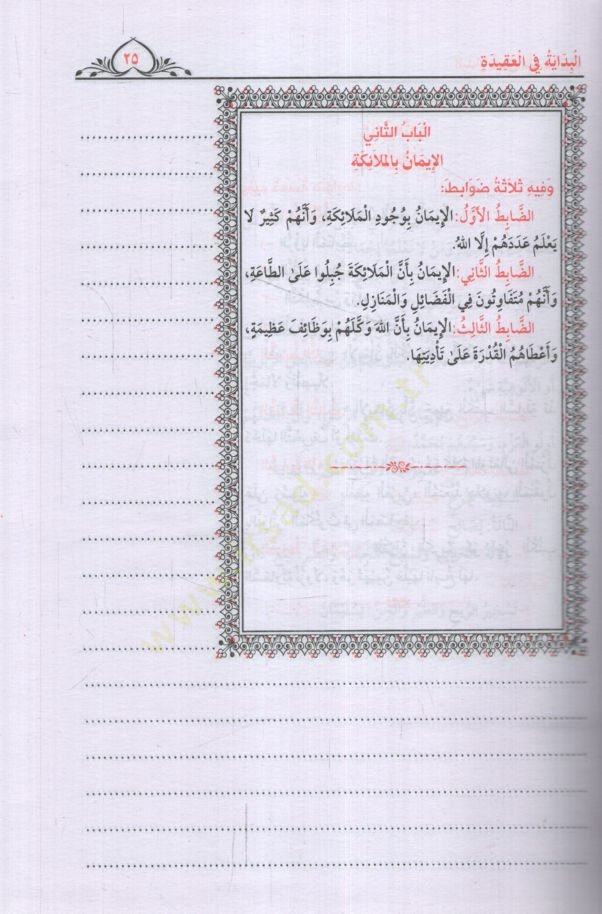 الْبِدَايَةُ فِي الْعَقِيدَةِ
٢٥
الْبَابُ الثَّانِي
الْإِيمَانُ بِالْمَلَائِكَةِ
وَفِيهِ ثَلَاثَةُ ضَوَابِطَ:
الضَّابِطُ الْأَوَّلُ: الْإِيمَانُ بِوُجُودِ الْمَلَائِكَةِ، وَأَنَّهُمْ كَثِيرٌ لَا
يَعْلَمُ عَدَدَهُمْ إِلَّا اللهُ.
الضَّابِطُ الثَّانِي: الْإِيمَانُ بِأَنَّ الْمَلَائِكَةَ جُبِلُوا عَلَى الطَّاعَةِ،
وَأَنَّهُمْ مُتَفَاوِتُونَ فِي الْفَضَائِلِ وَالْمَنَازِلِ.
الضَّابِطُ الثَّالِثُ: الْإِيمَانُ بِأَنَّ اللهَ وَكَّلَهُمْ بِوَظَائِفَ عَظِيمَةٍ،
وَأَعْطَاهُمُ الْقُدْرَةَ عَلَى تَأْدِيَتِهَا.